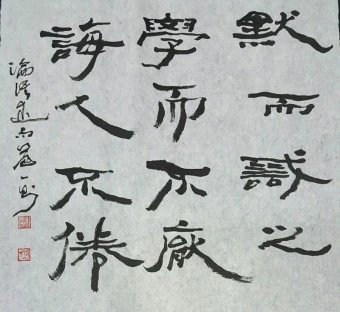 默而識之
學而不厭
誨人不倦
論語述而篇